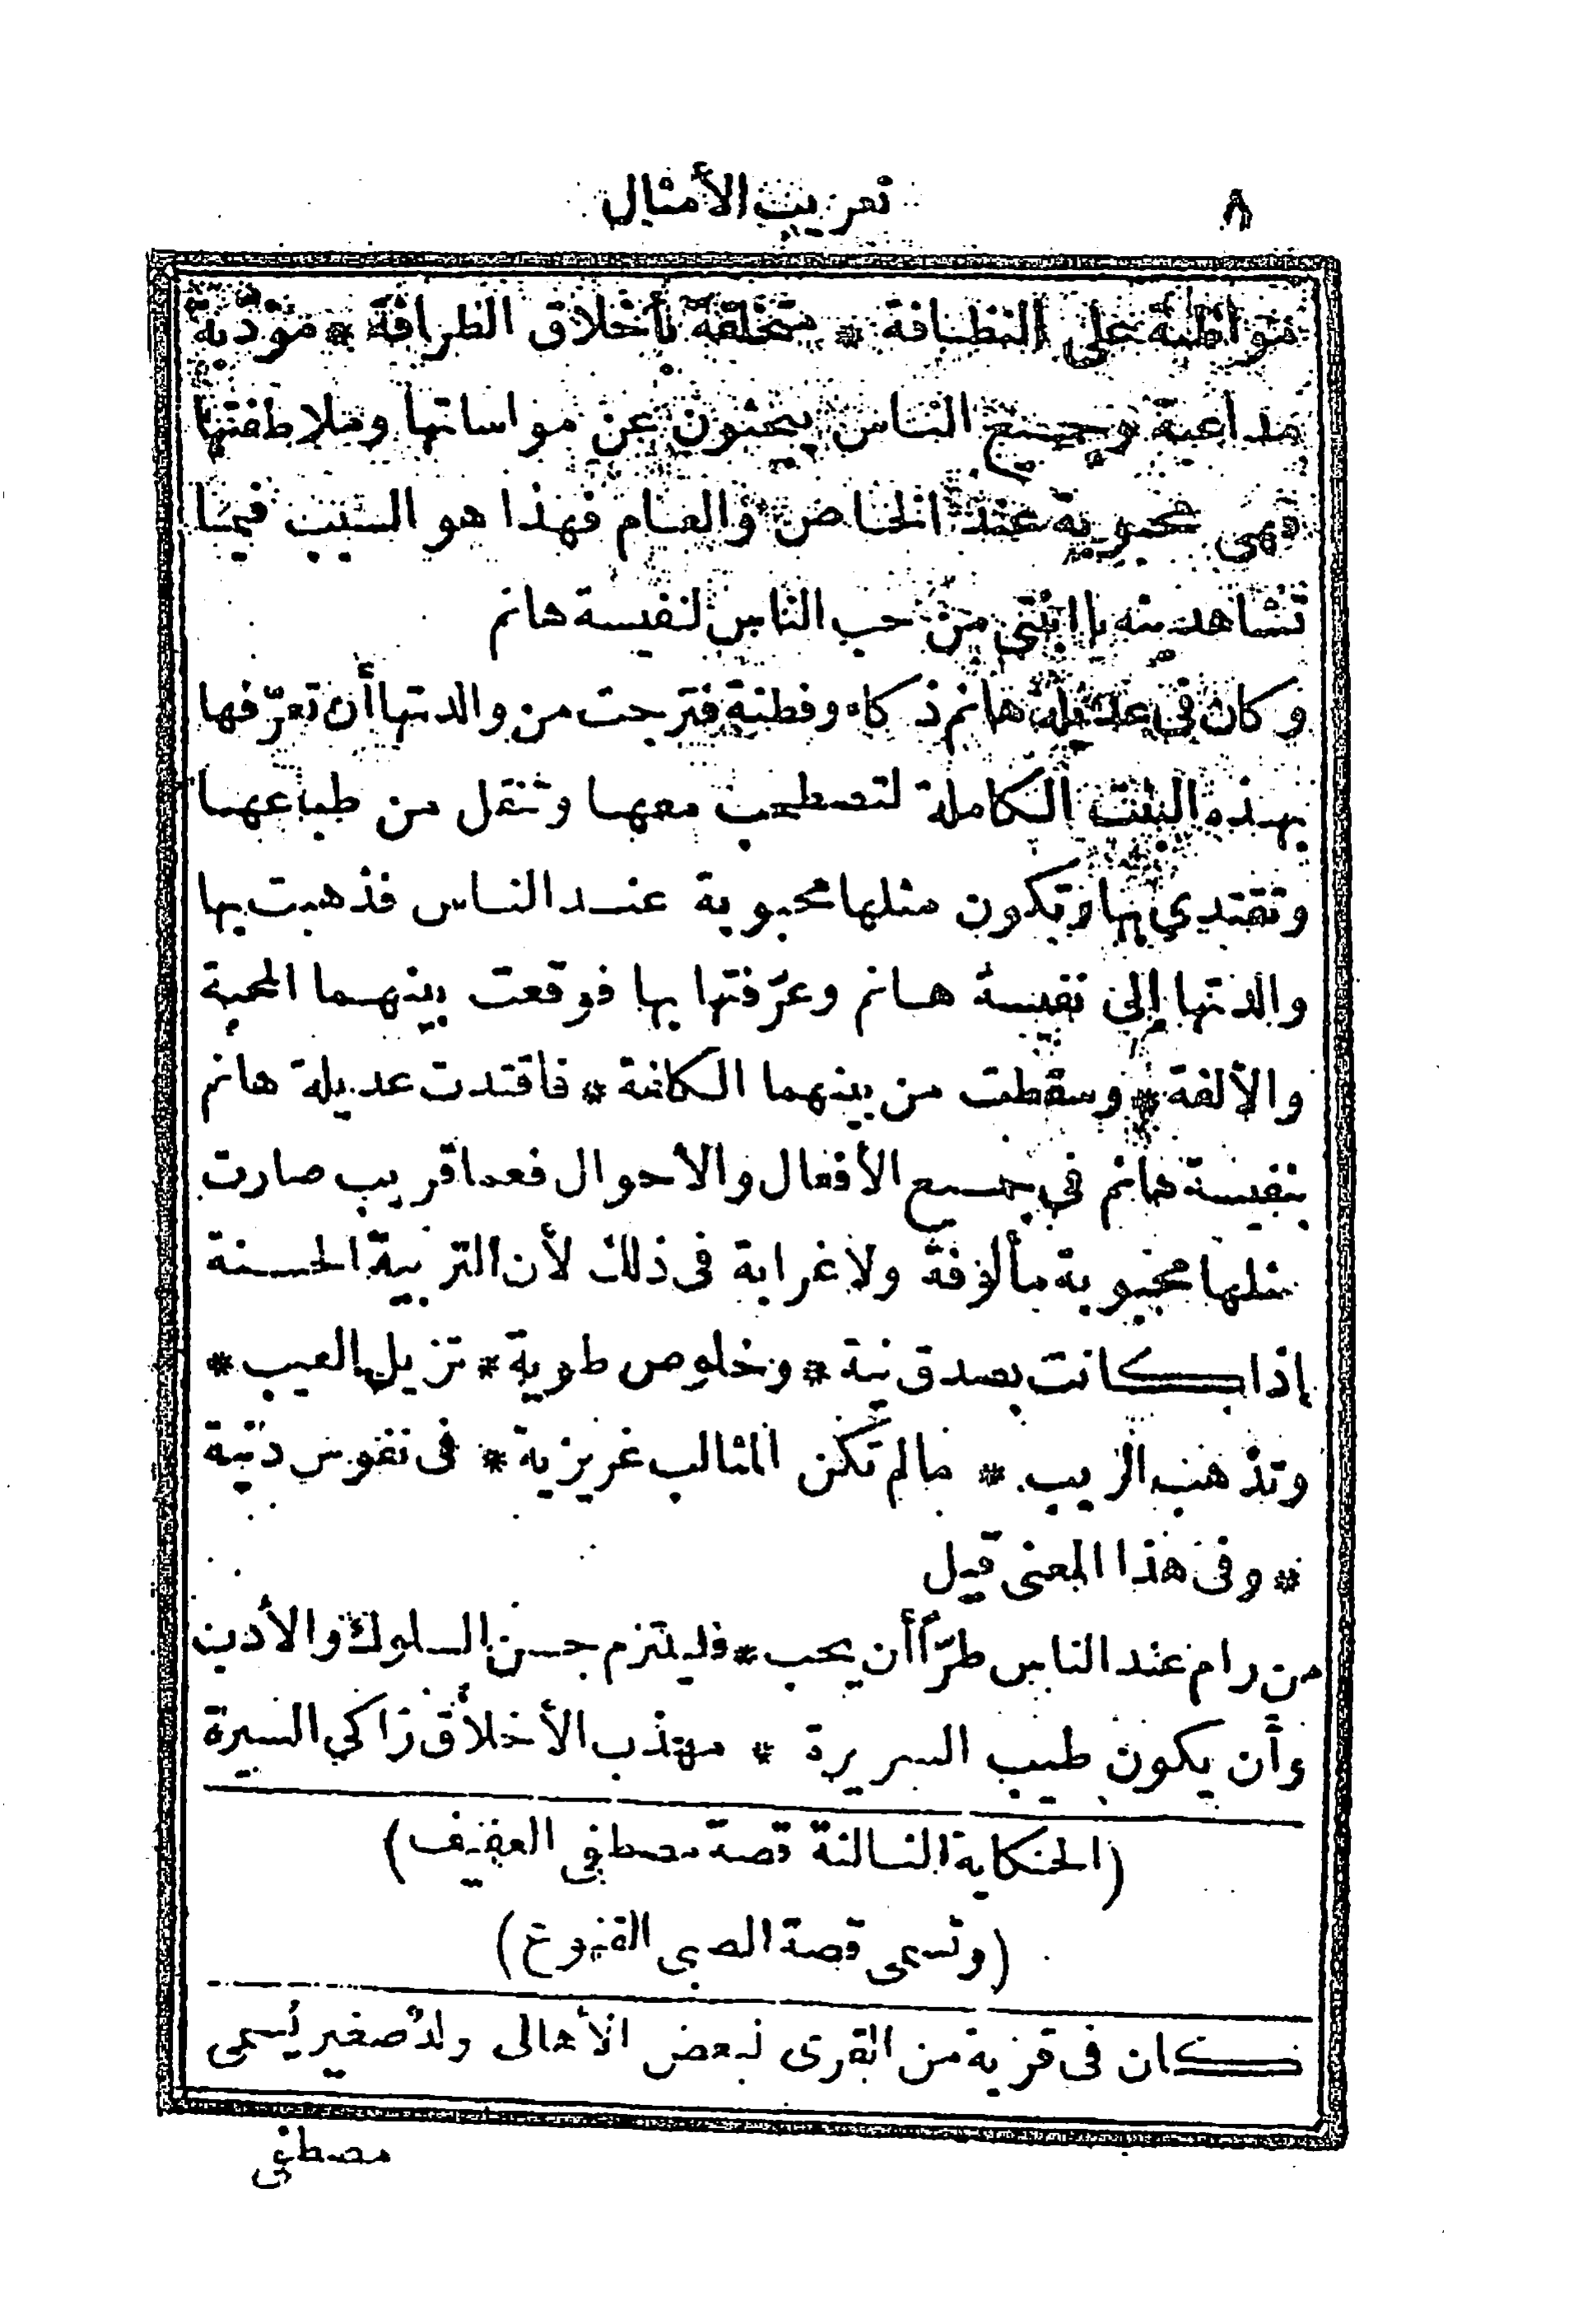 ٨
تعريب الأمثال
مواظبة على النظافة * متخلقة بأخلاق الظرافة * مؤدبة
مداعبة وجميع الناس يبحثون عن مواساتها وملاطفتها
فهى محبوبة عند الخاص والعام فهذا هو السبب فيما
تشاهدينه يا ابنتى من حب الناس لنفيسة هانم
وكان في عديلة هانم ذكاء وفطنة فترجت من والدتها أن تعرّفها
بهذه البنت الكاملة لتصطحب معها وتنقل من طباعها
وتقتدي بها وتكون مثلها محبوبة عند الناس فذهبت بها
والدتها إلى نفيسة هانم وعرّفتها بها فوقعت بينهما المحبة
والألفة * وسقطت من بينهما الكلفة * فاقتدت عديلة هانم
بنفيسة هانم في جميع الأفعال والأحوال فعما قريب صارت
مثلها محبوبة مألوفة ولا غرابة فى ذلك لأن التربية الحسنة
إذا كانت بصدق نية * وخلوص طوية * تزيل العيب *
وتذهب الريب * ما لم تكن المثالب غريزية * فى نفوس دنية
* وفى هذا المعنى قيل
من رام عند الناس طرّاً أن يحب * فليلتزم حسن السلوك والأدب
وأن يكون طيب السريرة * مهذب الأخلاق زاكي السيرة
(الحكاية الثالثة قصة مصطفى العفيف)
(وتسمى قصة الصبى القنوع)
كان فى قرية من القرى لبعض الأهالى ولدٌ صغير يُسمى
مصطفى